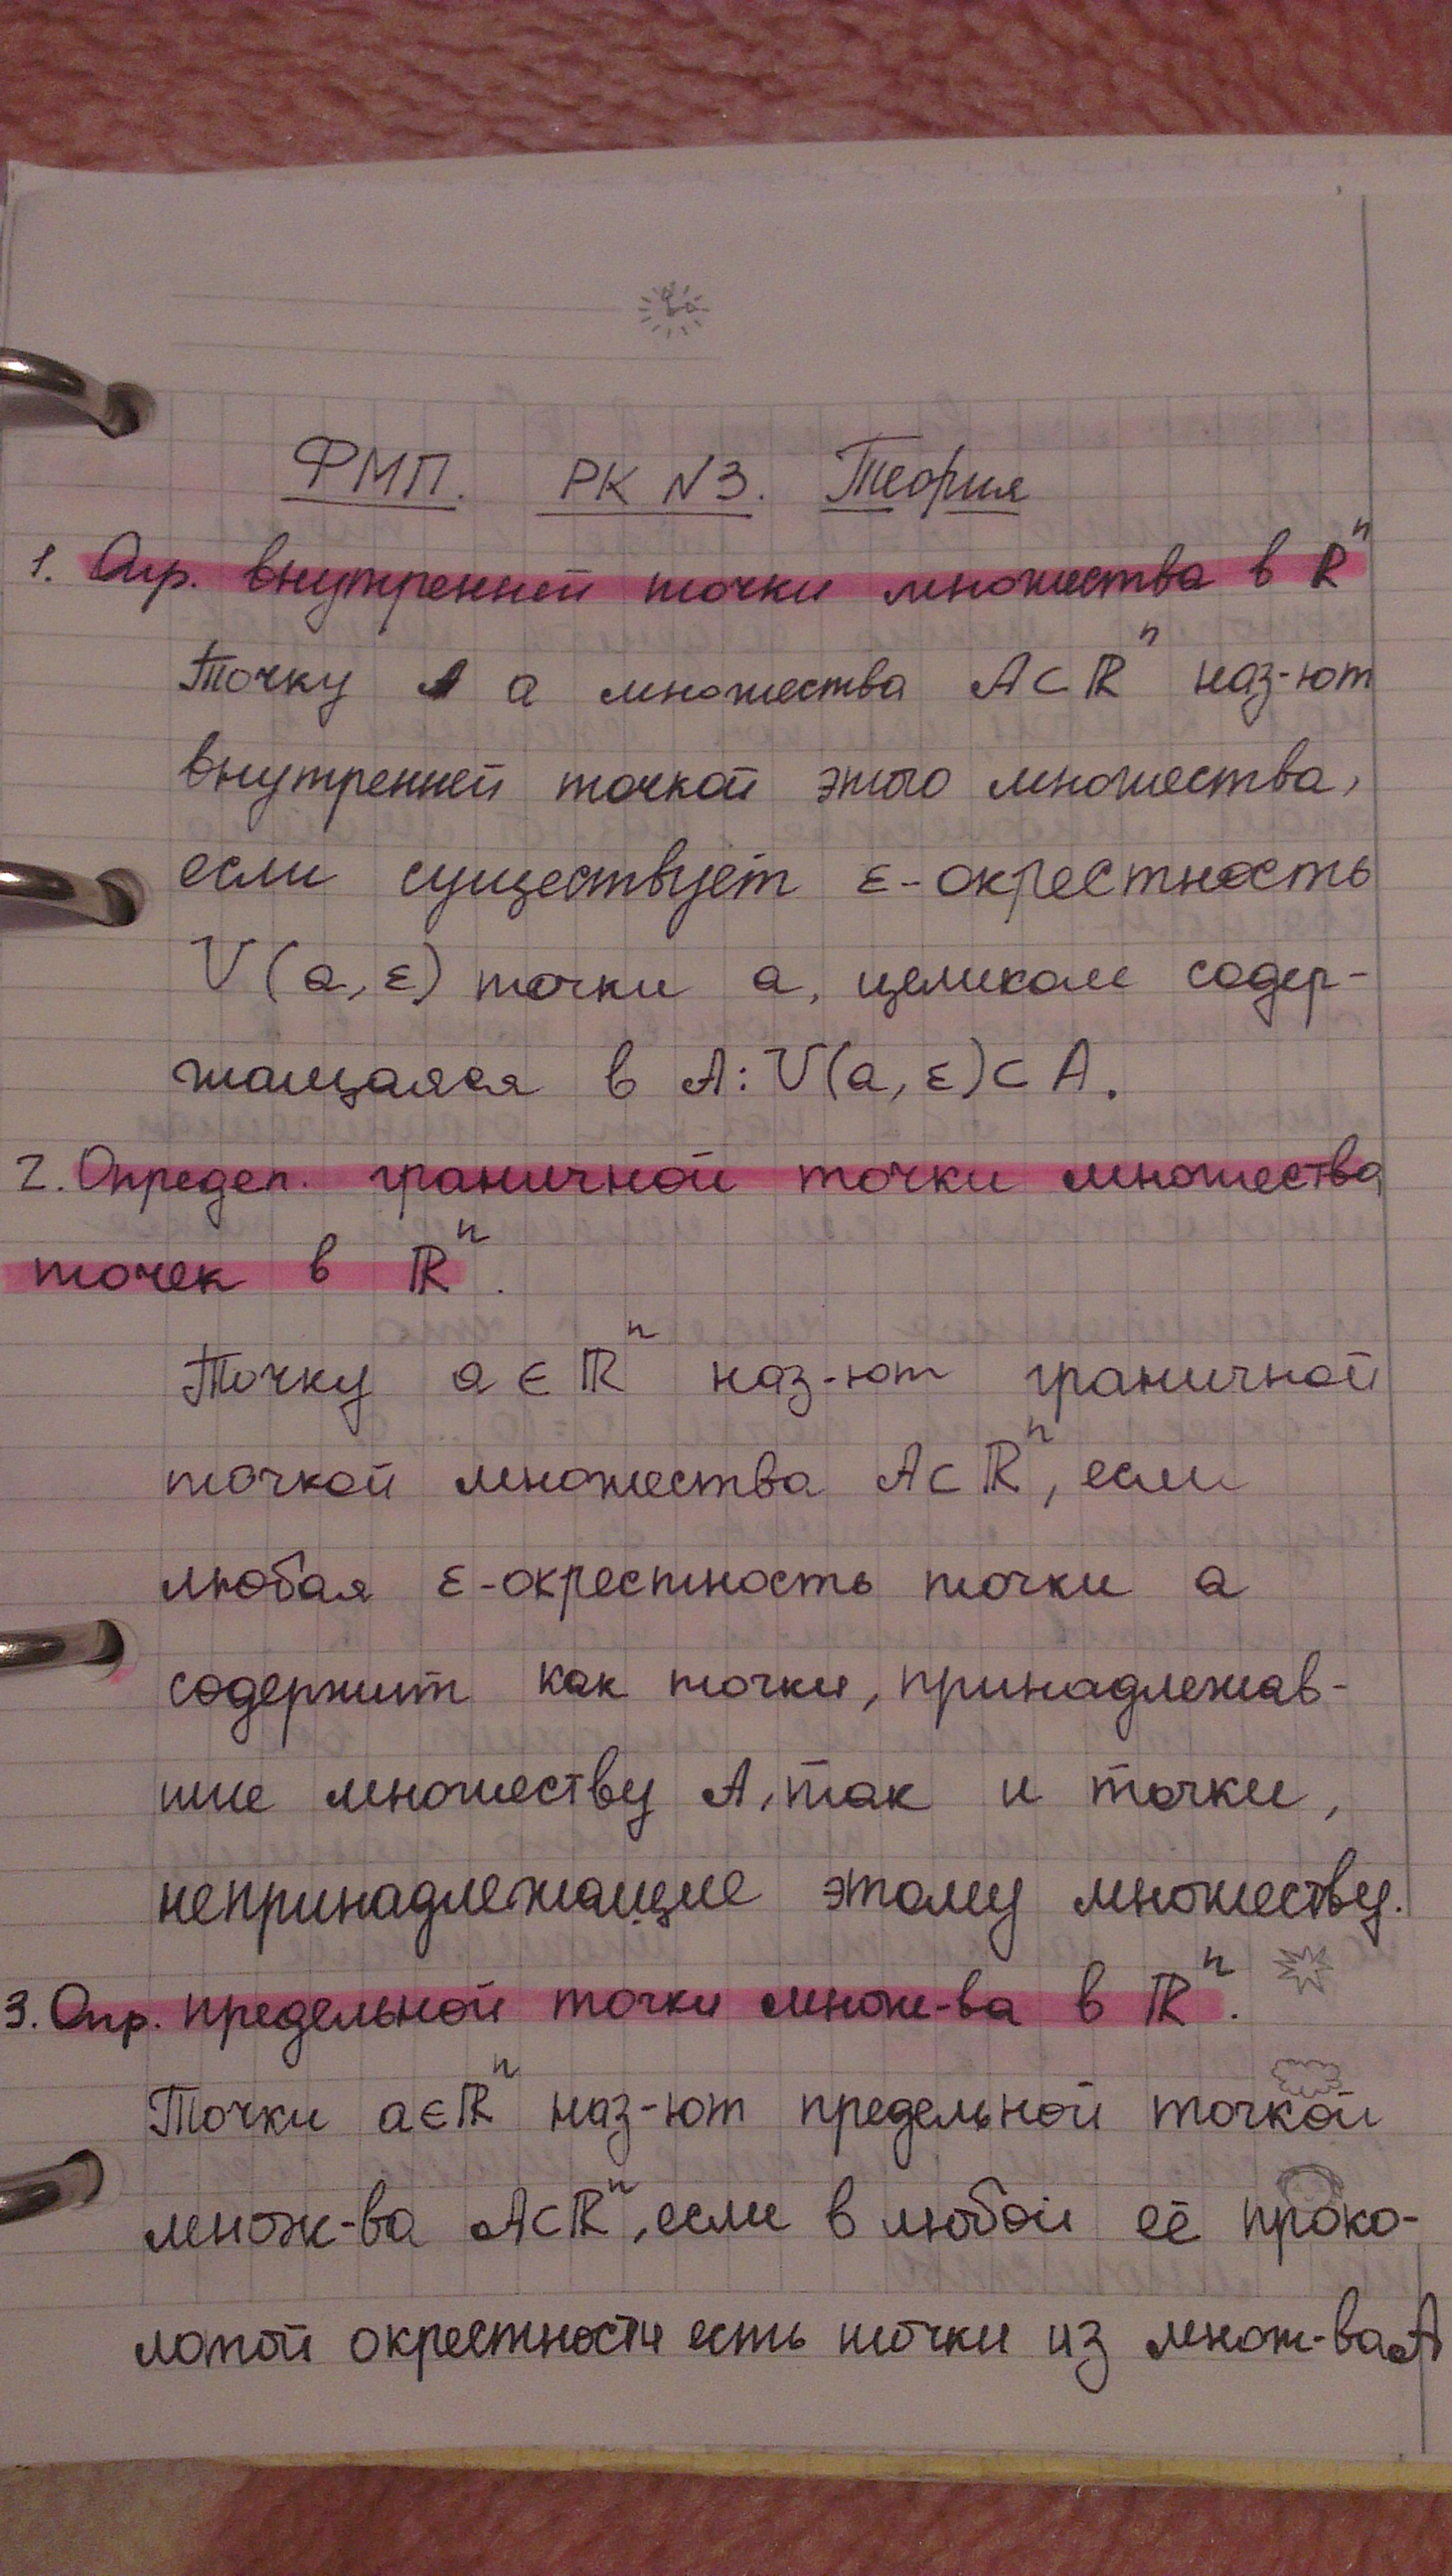 ФМП. РК N3. Теория
1. Опр. внутренней точки множества в ℝⁿ
Точку а множества A⊂ℝⁿ наз-ют
внутренней точкой этого множества,
если существует ε-окрестность
U(a, ε) точки a, целиком содер-
жащаяся в A: U(a, ε)⊂A.
2. Определ. граничной точки множества
точек в ℝⁿ.
Точку a∈ℝⁿ наз-ют граничной
точкой множества A⊂ℝⁿ, если
любая ε-окрестность точки a
содержит как точки, принадлежав-
шие множеству A, так и точки,
непринадлежащие этому множеству.
3. Опр. предельной точки множ-ва в ℝⁿ.
Точки a∈ℝⁿ наз-ют предельной точкой
множ-ва A⊂ℝⁿ, если в любой её проко-
лотой окрестности есть точки из множ-ва A